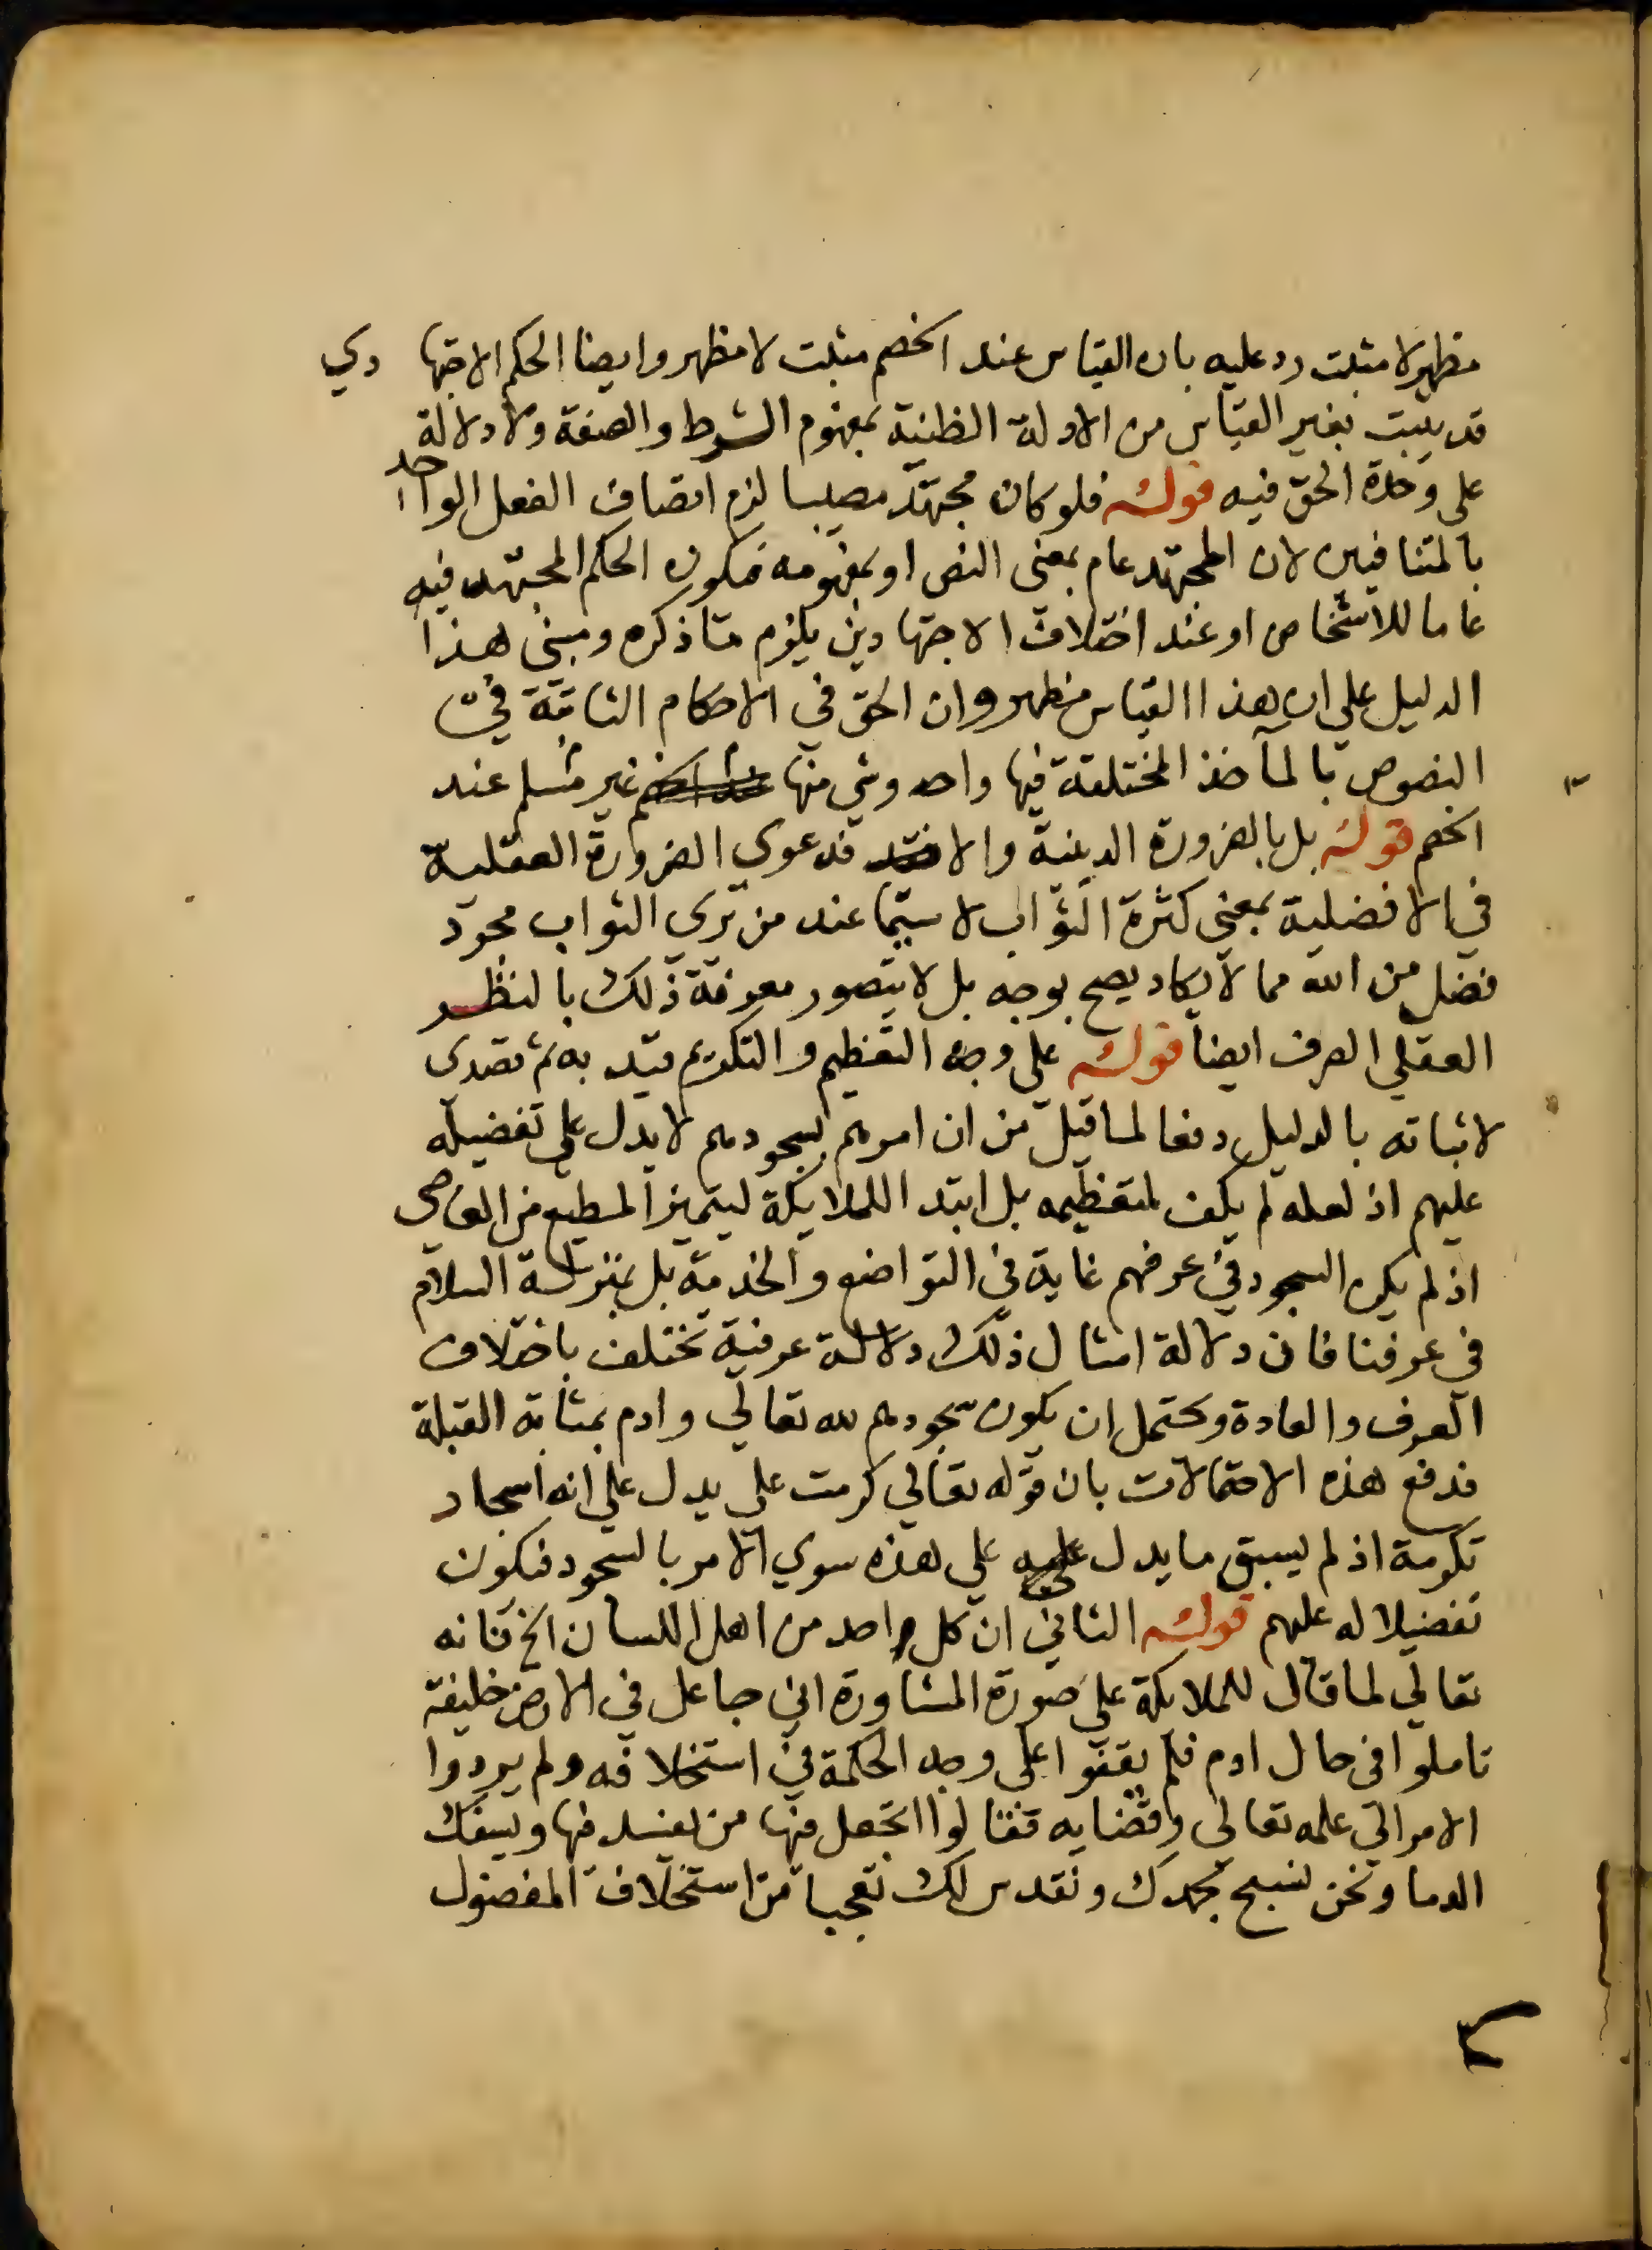 مظهر لا مثبت رد عليه بان القياس عند الخصم مثبت لا مظهر وايضا الحكم الاجتها دي
قد يثبت بغير القياس من الادلة الظنية بمفهوم الشرط والصفة ولا دلالة
على وحدة الحق فيه قوله فلو كان مجتهد مصيبا لزم اتصاف الفعل الواحد
بالمتنافيين لان المجتهد عام بمعنى النص او بمفهومه فيكون الحكم المجتهد فيه
عاما للاشخاص او عند اختلاف الاجتهادين يلزم ما ذكره ومبنى هذا
الدليل على ان هذا القياس مظهر وان الحق في الاحكام الثابتة في
النصوص بالمأخذ المختلفة فيها واحد وشي منها غير مسلم عند
الخصم قوله بل بالضرورة الدينية والا فدعوى الضرورة العقلية
في الافضلية بمعنى كثرة الثواب لا سيما عند من يرى الثواب مجرد
فضل من الله مما لا يكاد يصح بوجه بل لا يتصور معرفة ذلك بالنظر
العقلي الصرف ايضا قوله على وجه التعظيم والتكريم قيد به ثم تصدى
لاثباته بالدليل دفعا لما قيل من ان امرهم بسجودهم لا يدل على تفضيله
عليهم اذ لعله لم يكن لتعظيمه بل ابتد اللملايكة ليتميز المطيع من العاصي
اذ لم يكن السجود في عرفهم غاية في التواضع والخدمة بل بمنزلة السلام
في عرفنا فان دلالة امثال ذلك دلالة عرفية تختلف باختلاف
العرف والعادة ويحتمل ان يكون سجودهم لله تعالى وادم بمثابة القبلة
فدفع هذه الاحتمالات بان قوله تعالى كرمت على يدل على انه اسجاد
تكرمة اذ لم يسبق ما يدل عليه على هذه سوي الامر بالسجود فتكون
تفضيلا له عليهم قوله الثاني ان كل واحد من اهل اللسان الخ فانه
تعالى لما قال للملايكة على صورة المشاورة اني جاعل في الارض خليفة
تاملوا في حال ادم فلم يقفوا على وجه الحكمة في استخلافه ولم يردوا
الامر الى علمه تعالى وقضايه فقالوا اتجعل فيها من يفسد فيها ويسفك
الدما ونحن نسبح بحمدك ونقدس لك تعجبا من استخلاف المفضول